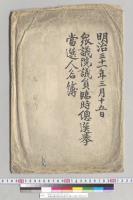 明治三十一年三月十五日
衆議院議員臨時總選擧
當選人名簿